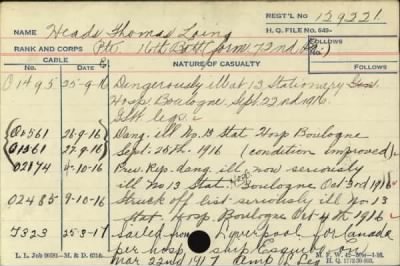 REGT'L No 129221
NAME Heads Thomas Laing
H.Q. FILE No. 649-
RANK AND CORPS Pte 16th Batt form 72nd Bn.
FOLLOWS
CABLE NATURE OF CASUALTY
No. DATE FOLLOWS
01495 25-9-16 Dangerously ill at 13 Stationery Gen
Hosp. Boulogne Sept 22nd 1916.
GSW legs.
01561 26-9-16 Dang. ill No 13 Stat Hosp Boulogne
01561 27-9-16 Sept. 25th 1916 (condition improved)
02174 4-10-16 Prev. Rep. dang. ill now seriously
ill No 13 Stat. Hosp Boulogne Oct 3rd 1916
02485 9-10-16 Struck off list seriously ill No 13
Stat. Hosp. Boulogne Oct 4th 1916
T323 25-3-17 Sailed from Liverpool for Canada
per hosp. ship Esquibo on
Mar 22nd 1917 amp
M. F. W.